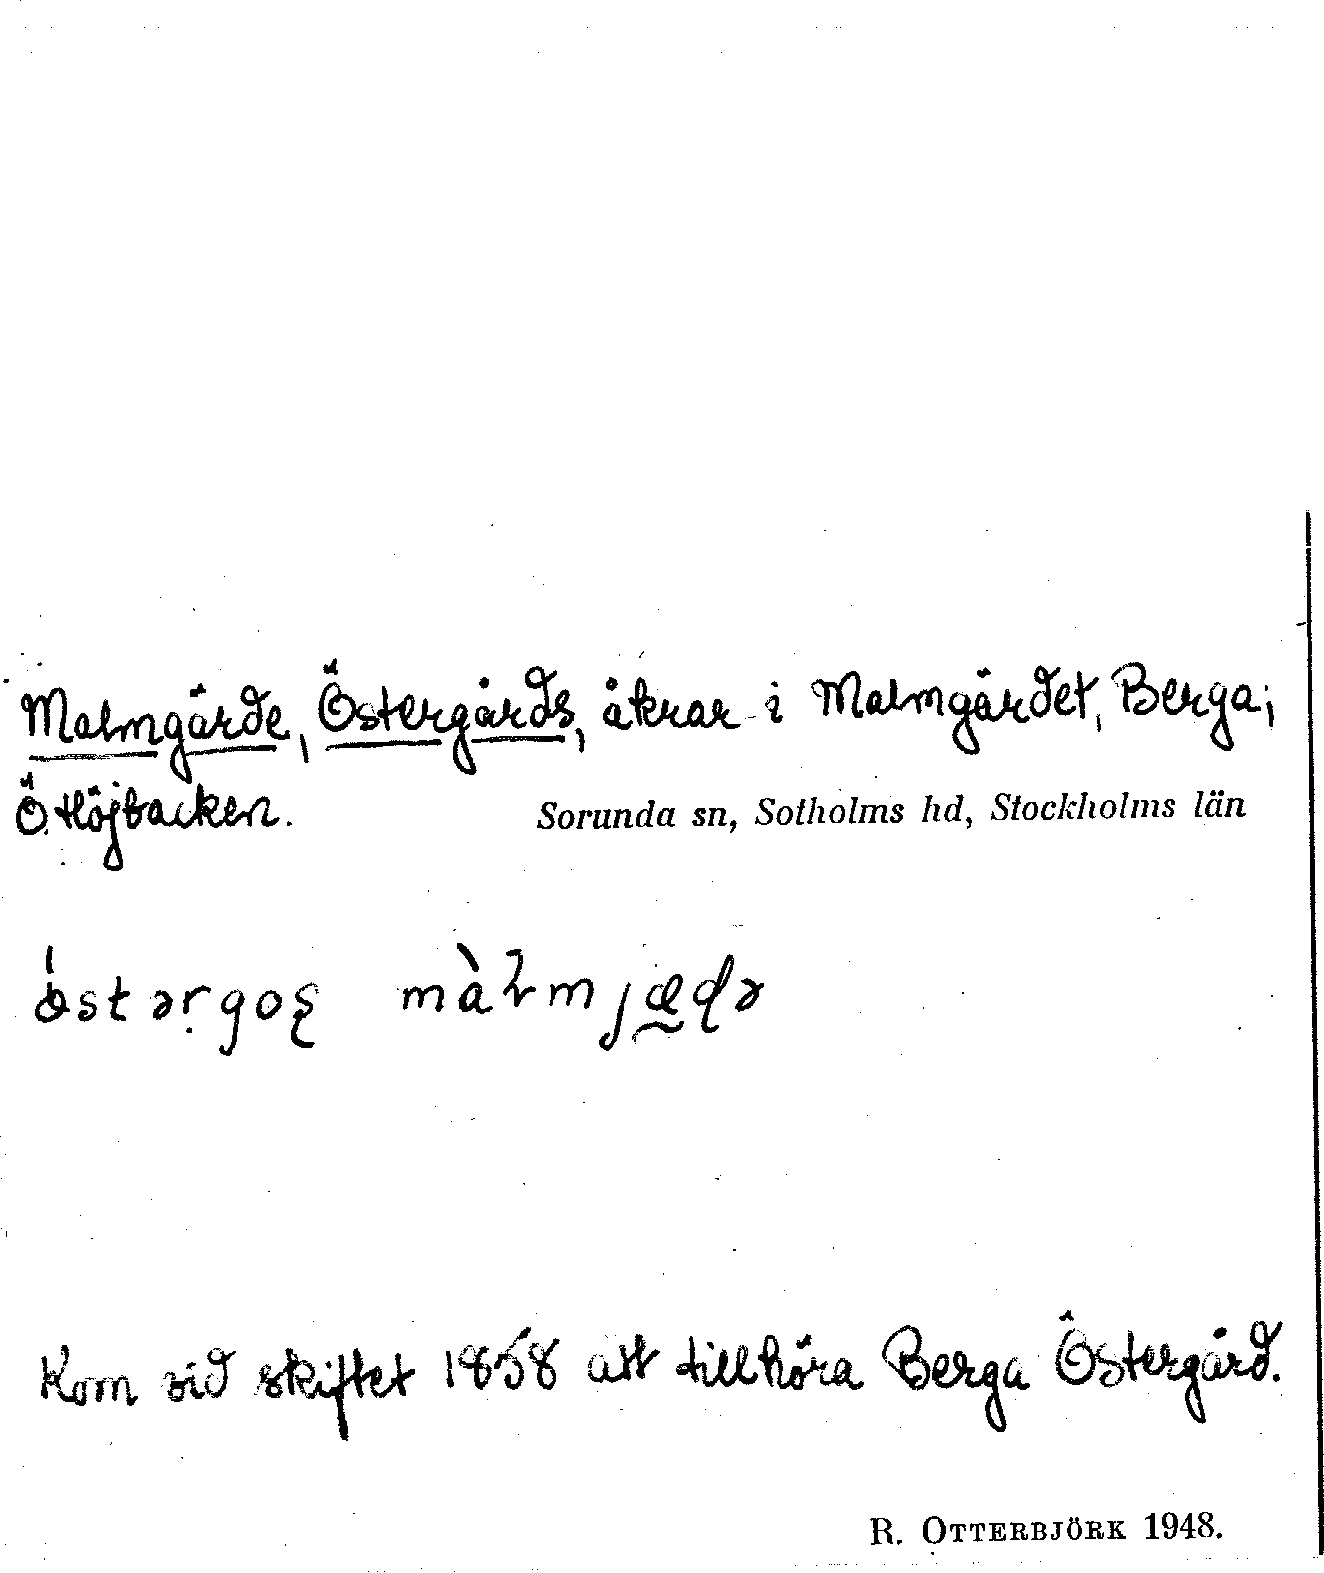 Malmgärde, Östergårds, åkrar i Malmgärdet, Berga;
Ö. Höjbacken. Sorunda sn, Sotholms hd, Stockholms län
Kom vid skiftet 1858 att tillhöra Berga Östergård.
R. OTTERBJÖRK 1948.